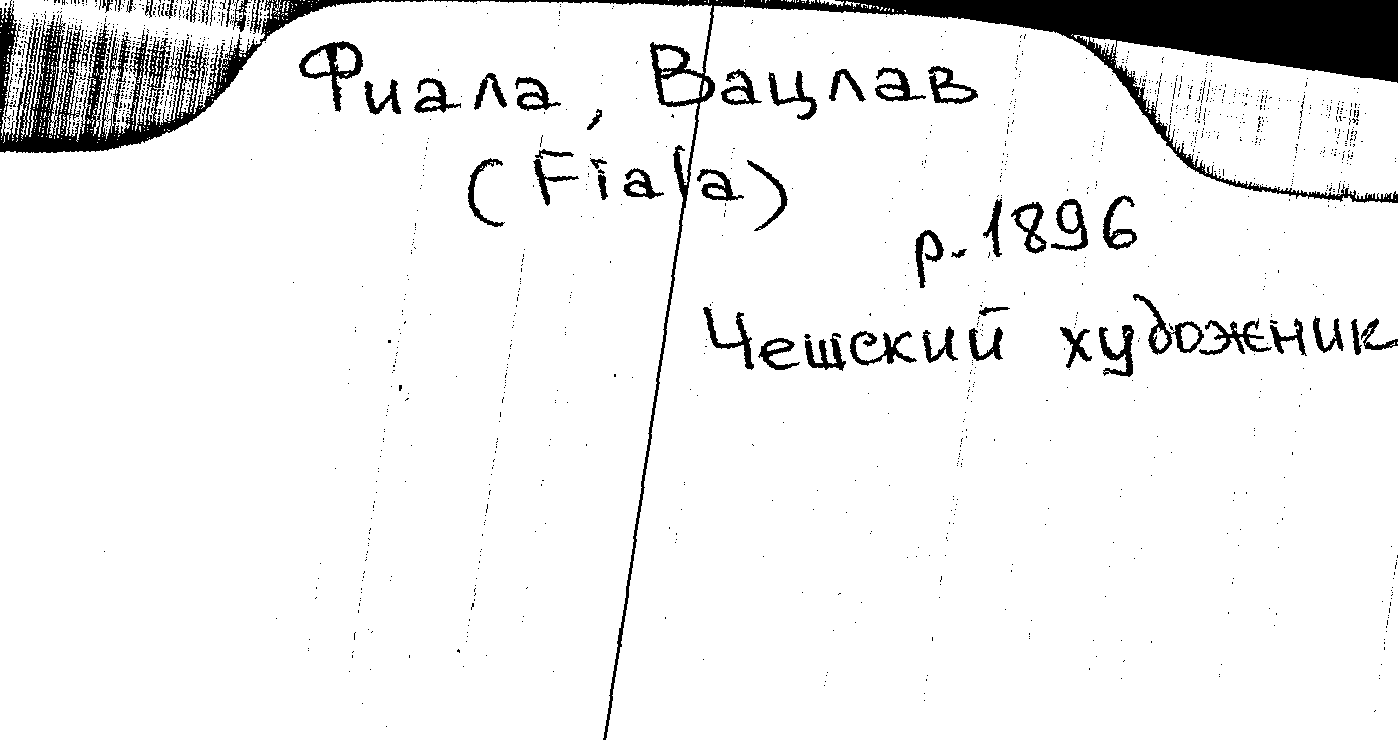 Фиала, Вацлав
(Fiala)
р. 1896
Чешский художник